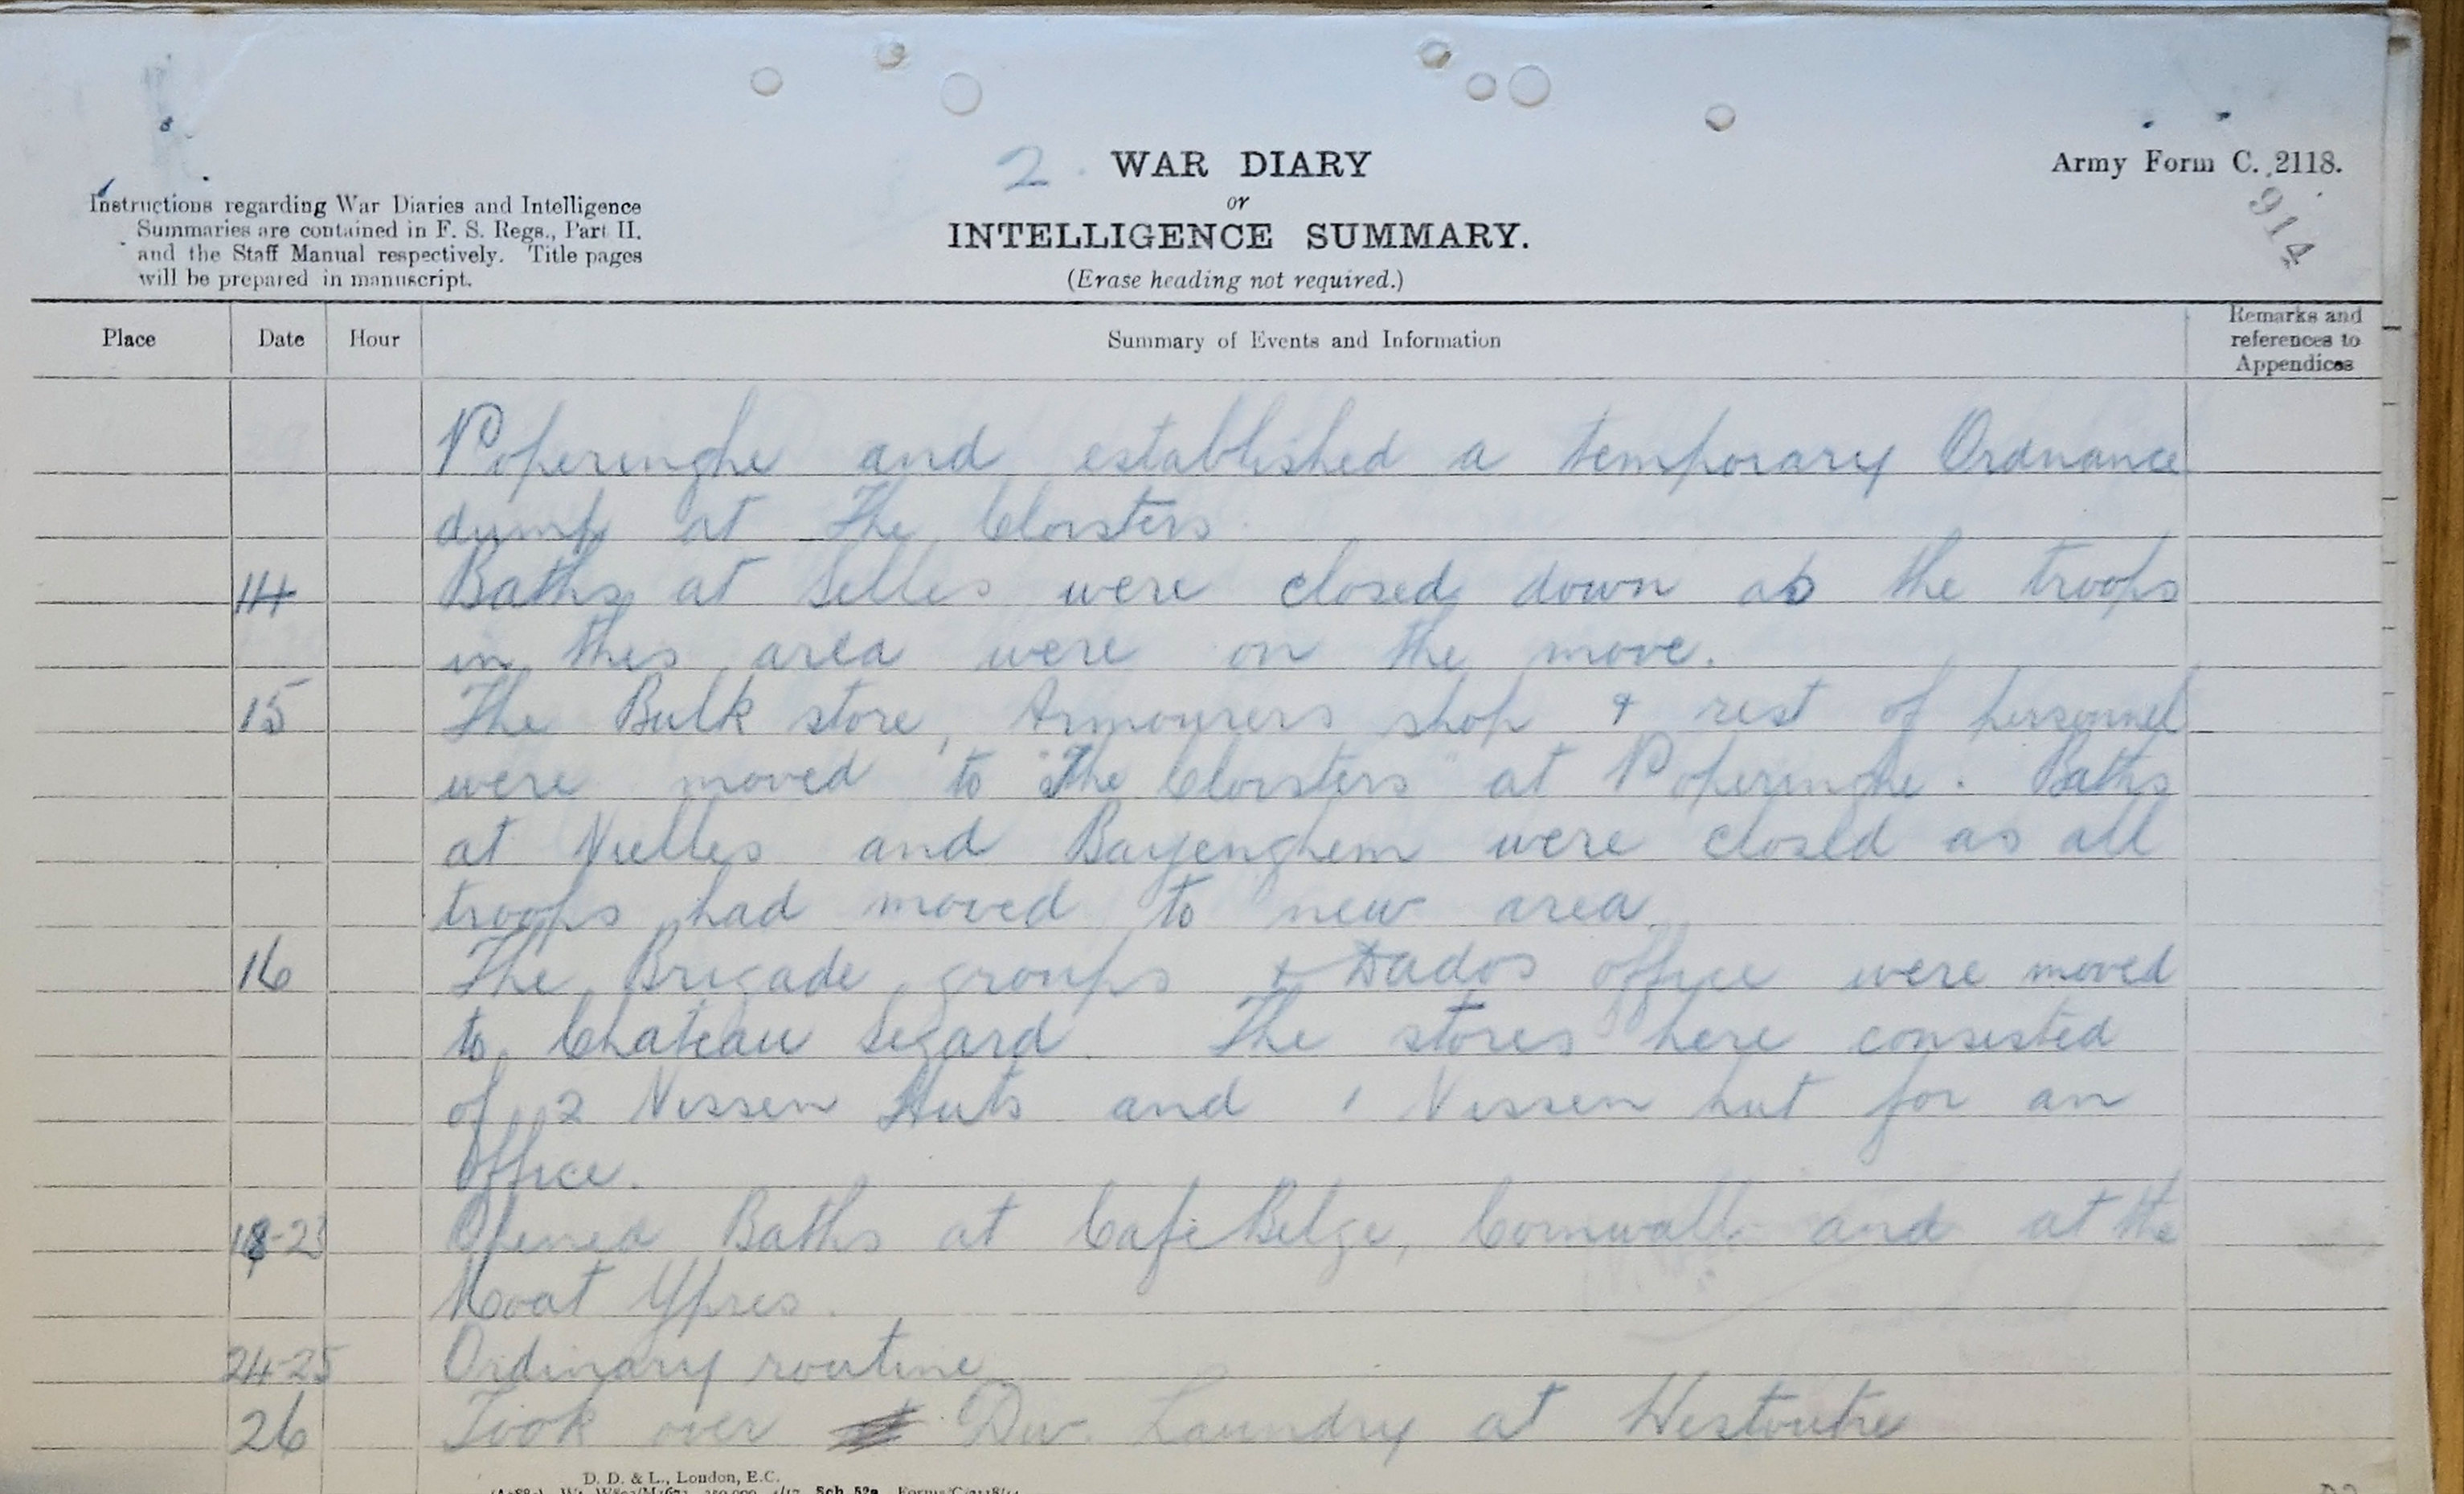 2. WAR DIARY
or
INTELLIGENCE SUMMARY.
(Erase heading not required.)
Army Form C. 2118.
914
Instructions regarding War Diaries and Intelligence
Summaries are contained in F. S. Regs., Part II.
and the Staff Manual respectively. Title pages
will be prepared in manuscript.
Place Date Hour Summary of Events and Information Remarks and references to Appendices
Poperinghe and established a temporary Ordnance
dump at The Cloisters.
14 Baths at Selles were closed down as the troops
in this area were on the move.
15 The Bulk store, Armourers shop & rest of personnel
were moved to "The Cloisters" at Poperinghe. Baths
at Nielles and Bayenghem were closed as all
troops had moved to new area.
16 The Brigade groups & Dados office were moved
to Chateau Segard. The stores here consisted
of 2 Nissen Huts and 1 Nissen hut for an
office.
18-23 Opened Baths at Cafe Belge, Cornwall and at the
Moat Ypres.
24-25 Ordinary routine
26 Took over Div. Laundry at Westoutre
D. D. & L., London, E.C.
Sch. 52a